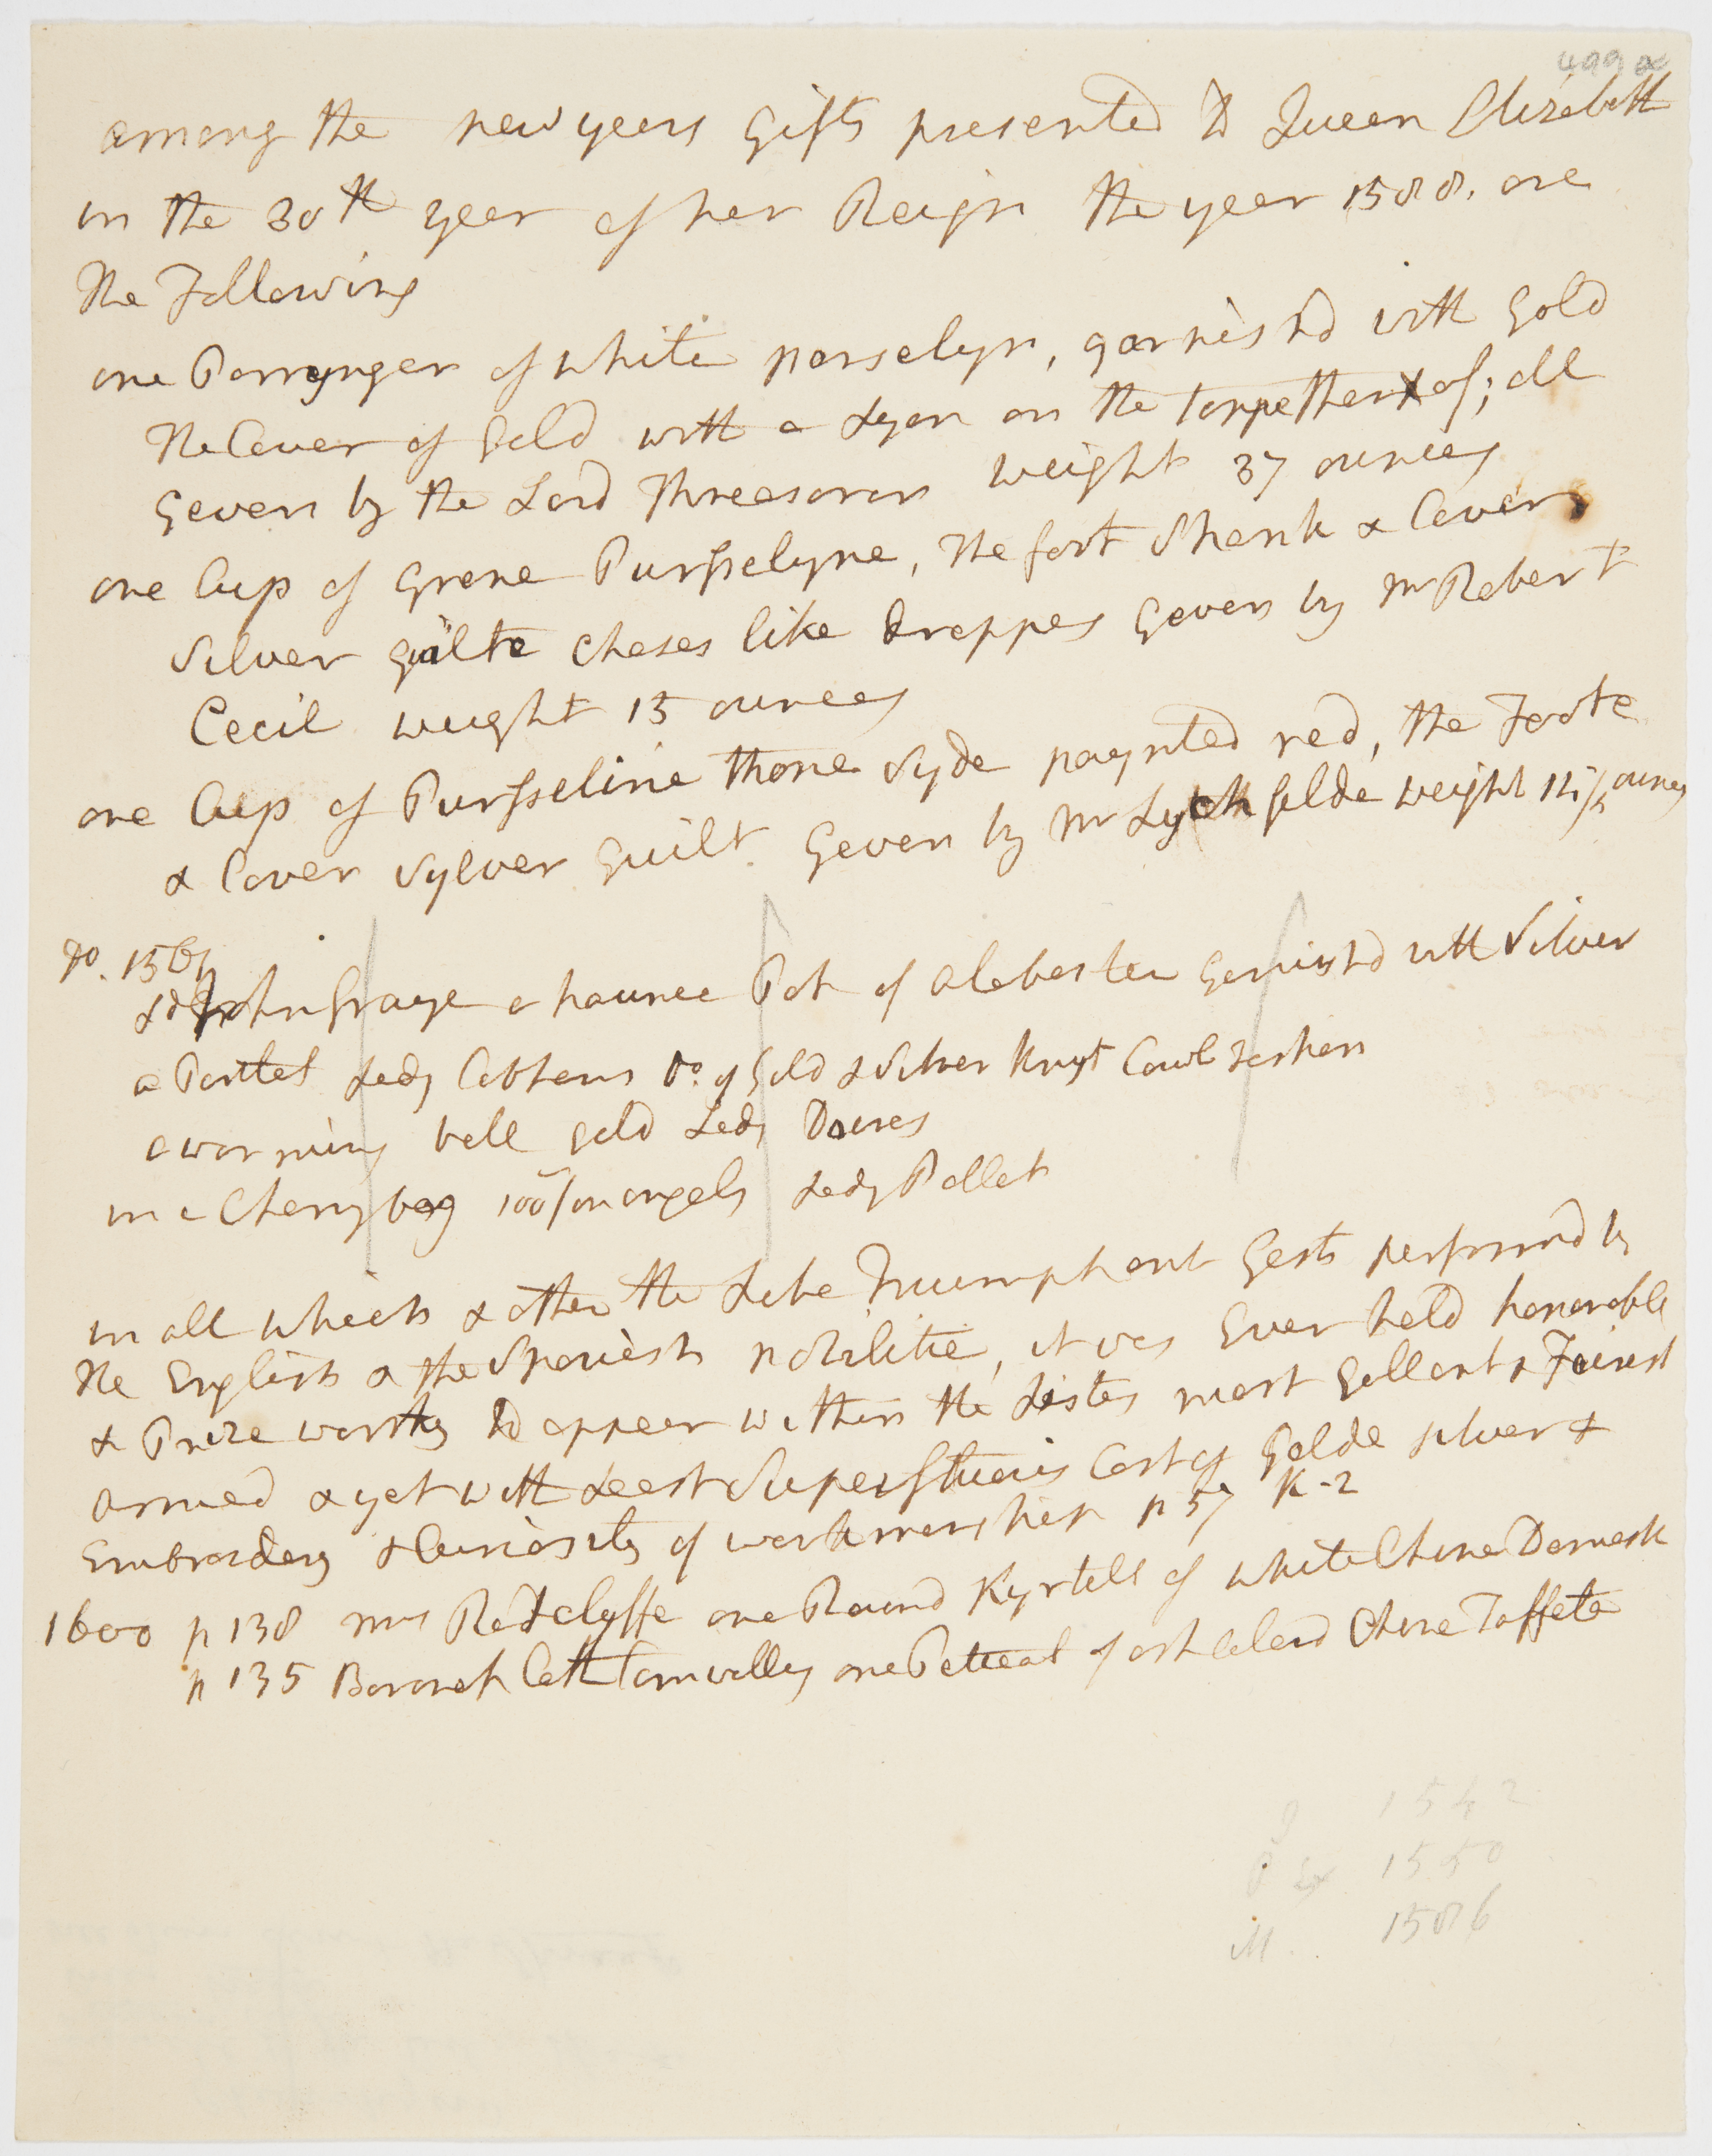 499 a
among the new years Gifts presented to Queen Elizabeth
in the 30th year of her Reign the year 1588. are
the Following
one Porrynger of white porselyn, garnishd with Gold
the Cover of Gold with a Lyon on the toppe thereof; all
Geven by the Lord Threasorour weight 37 ounces
one Cup of Grene Pursselyne, the foot Shank & Cover
Silver guilte chases like droppes Geven by Mr Robert
Cecil weight 15 ounces
one Cup of Pursseline thone Syde paynted red, the Foote
& Cover Sylver Guilt Geven by Mr Lychfelde weight 14 1/2 ounces
do. 1561
Ld John Graye a haunce Pot of alabaster Garnishd with Silver
a Partlet Lady Cobham Do. of Gold & Silver knyt Cawl fashion
a warming ball gold Lady Dacres
in a Cherry bag 100/ in angels Lady Pallet
in all which & other the Like Triumphant Gests performd by
the English & the Spanish nobilitie, it was Ever held honorable
& Prize worthy to appear within the Listes most Gallant & Fairest
armed & yet with Least Superfluous Cost of Golde silver &
Embroidery & Curiosity of workmanship p 57 K-2
1600 p 138 Mrs Radclyffe one Round Kyrtell of white China Damask
p 135 Baronet Cath Cornwalley one Peticoat of ash Colerd China Taffeta
1542
P 1550
M .. 1586